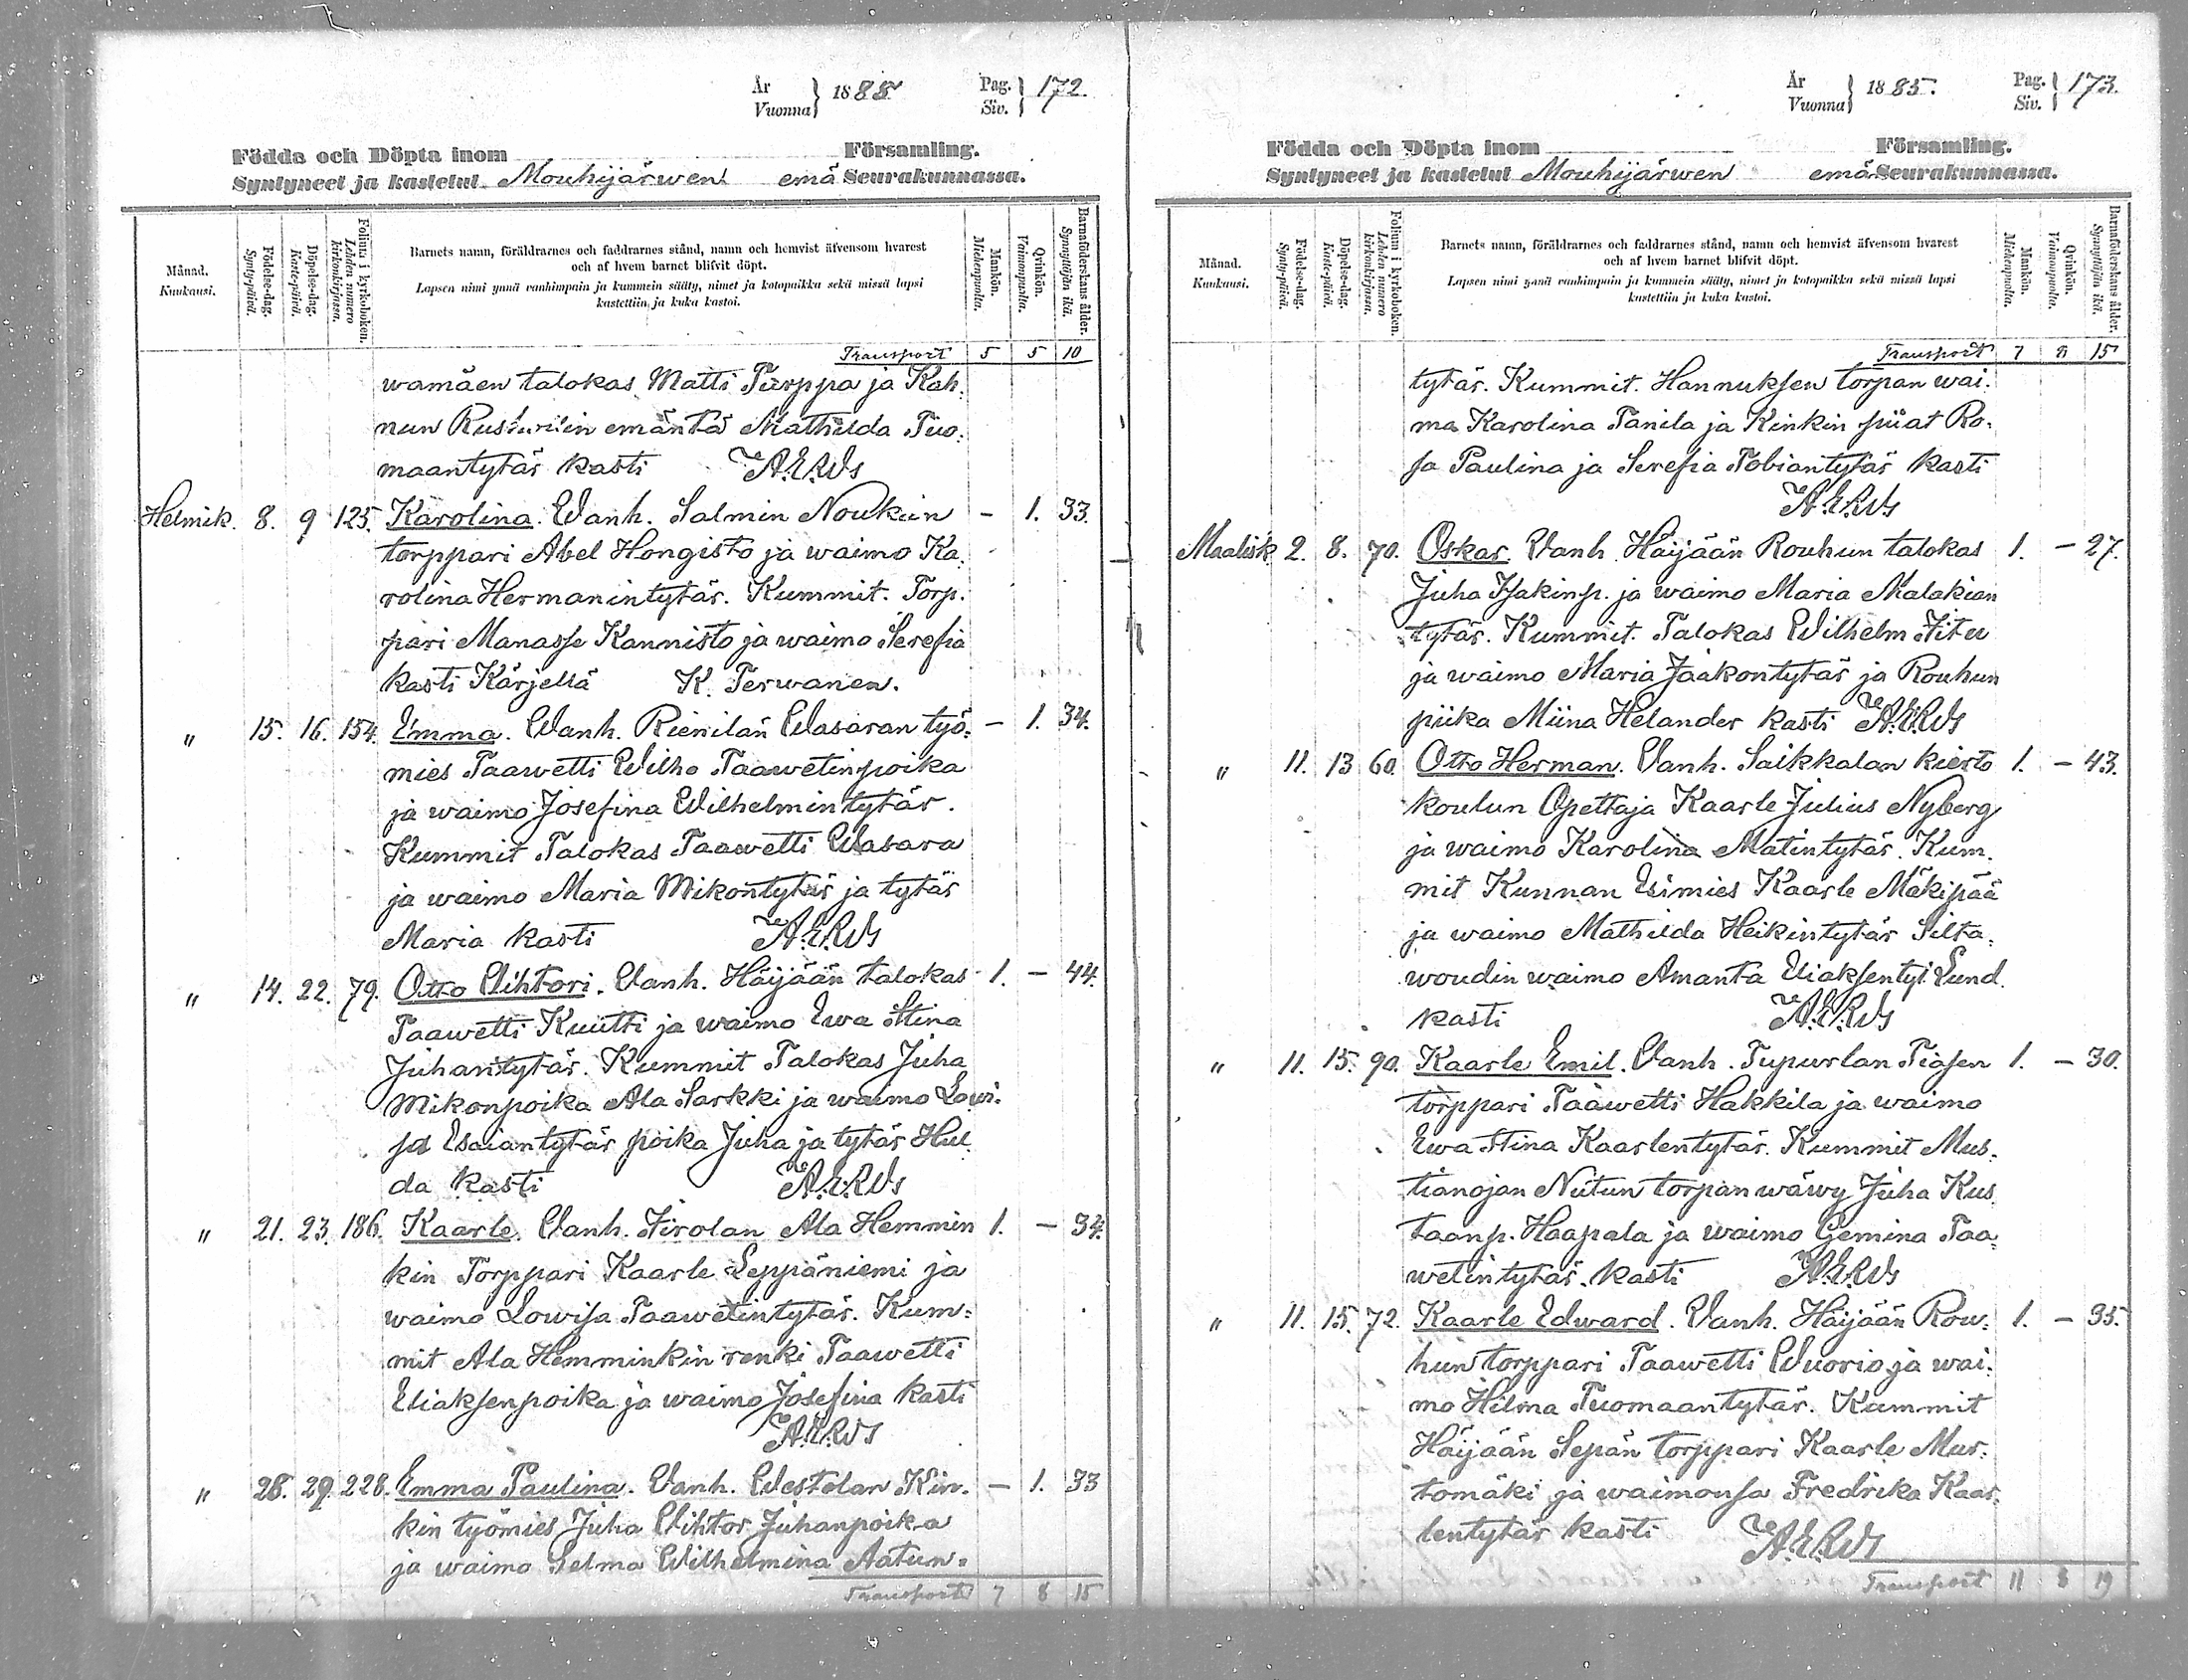 År
Vuonna } 1885
Pag.
Siv. } 172.
Födda och Döpta inom Församling.
Syntyneet ja kastetut Mouhijärwen emä Seurakunnassa.
Månad.
Kuukausi.
Födelse-dag.
Synty-päivä.
Döpelse-dag.
Kaste-päivä.
Folium i kyrkoboken.
Lehden numero kirkonkirjassa.
Barnets namn, föräldrarnes och faddrarnes stånd, namn och hemvist äfvensom hvarest
och af hvem barnet blifvit döpt.
Lapsen nimi ynnä vanhimpain ja kummein sääty, nimet ja kotopaikka sekä missä lapsi
kastettiin ja kuka kastoi.
Mankön.
Miehenpuolta.
Qvinkön.
Vaimonpuolta.
Barnaföderskans ålder.
Synnyttäjän ikä.
Transport 5 5 10
wamäen talokas Matti Turppa ja Kah.
nun emäntä Mathilda Tuo.
maantytär kasti A.E.RWs
Helmik. 8. 9 125. Karolina. Wanh. Salmin Noukin – 1. 33.
torppari Abel Hongisto ja waimo Ka.
rolina Hermanintytär. Kummit. Torp.
pari Manasse Kannisto ja waimo Serefia
kasti Kärjellä K. Terwanen.
" 15. 16. 154. Emma. Wanh. Rienilän Wasaran työ. – 1. 34.
mies Taawetti Wilho Taawetinpoika
ja waimo Josefina Wilhelmintytär.
Kummit Talokas Taawetti Wasara
ja waimo Maria Mikontytär ja tytär
Maria kasti A.E.RWs
" 14. 22. 79. Otto Wihtori. Wanh. Häijään talokas 1. – 44.
Taawetti Kuutti ja waimo Ewa Stina
Juhantytär. Kummit Talokas Juha
Mikonpoika Ala Sarkki ja waimo Lowi.
sa Esaiantytär poika Juha ja tytär Hul.
da kasti A.E.RWs
" 21. 23. 186. Kaarle. Wanh. Tirolan Ala Hemmin 1. – 34.
kin Torppari Kaarle Leppäniemi ja
waimo Lowisa Taawetintytär. Kum=
mit Ala Hemminkin renki Taawetti
Eliaksenpoika ja waimo Josefina kasti
A.E.RWs
" 28. 29. 228. Emma Paulina. Wanh. Westolan Kin. – 1. 33
kin työmies Juha Wihtor Juhanpoika
ja waimo Selma Wilhelmina Aatun=
Transport 7 8 15
År
Vuonna } 1885.
Pag.
Siv. } 173.
Födda och Döpta inom Församling.
Syntyneet ja kastetut Mouhijärwen emä Seurakunnassa.
Månad.
Kuukausi.
Födelse-dag.
Synty-päivä.
Döpelse-dag.
Kaste-päivä.
Folium i kyrkoboken.
Lehden numero kirkonkirjassa.
Barnets namn, föräldrarnes och faddrarnes stånd, namn och hemvist äfvensom hvarest
och af hvem barnet blifvit döpt.
Lapsen nimi ynnä vanhimpain ja kummein sääty, nimet ja kotopaikka sekä missä lapsi
kastettiin ja kuka kastoi.
Mankön.
Miehenpuolta.
Qvinkön.
Vaimonpuolta.
Barnaföderskans ålder.
Synnyttäjän ikä.
Transport 7 8 15
tytär. Kummit. Hannuksen torpan wai.
mo Karolina Tanila ja Kinkin piiat Ro.
sa Paulina ja Serefia Tobiantytär kasti
A.E.RWs
Maalisk 2. 8. 70. Oskar. Wanh. Häijään Rouhun talokas 1. – 27.
Juha Isakinp. ja waimo Maria Malakian
tytär. Kummit. Talokas Wilhelm
ja waimo Maria Jaakontytär ja Rouhun
piika Miina Helander kasti A.E.RWs
" 11. 13 60. Otto Herman. Wanh. Saikkalan kierto 1. – 43.
koulun Opettaja Kaarle Julius Nyberg
ja waimo Karolina Matintytär. Kum.
mit Kunnan Esimies Kaarle Mäkipää
ja waimo Mathilda Heikintytär Silta=
woudin waimo Amanta Eliaksentyt. Lund.
kasti A.E.RWs
" 11. 15. 90. Kaarle Emil. Wanh. Tupurlan Tiasen 1. – 30.
torppari Taawetti Hakkila ja waimo
Ewa Stina Kaarlentytär. Kummit Mus.
tianojan Niitun torpan wäwy Juha Kus
taanp. Haapala ja waimo Gemina Taa=
wetintytär. kasti A.E.RWs
" 11. 15. 72. Kaarle Edward. Wanh. Häijään Rou= 1. – 35.
hun torppari Taawetti Wuorio ja wai.
mo Hilma Tuomaantytär. Kummit
Häijään Sepän torppari Kaarle Mus.
tomäki ja waimonsa Fredrika Kaar.
lentytär kasti A.E.RWs
Transport 11 8 19